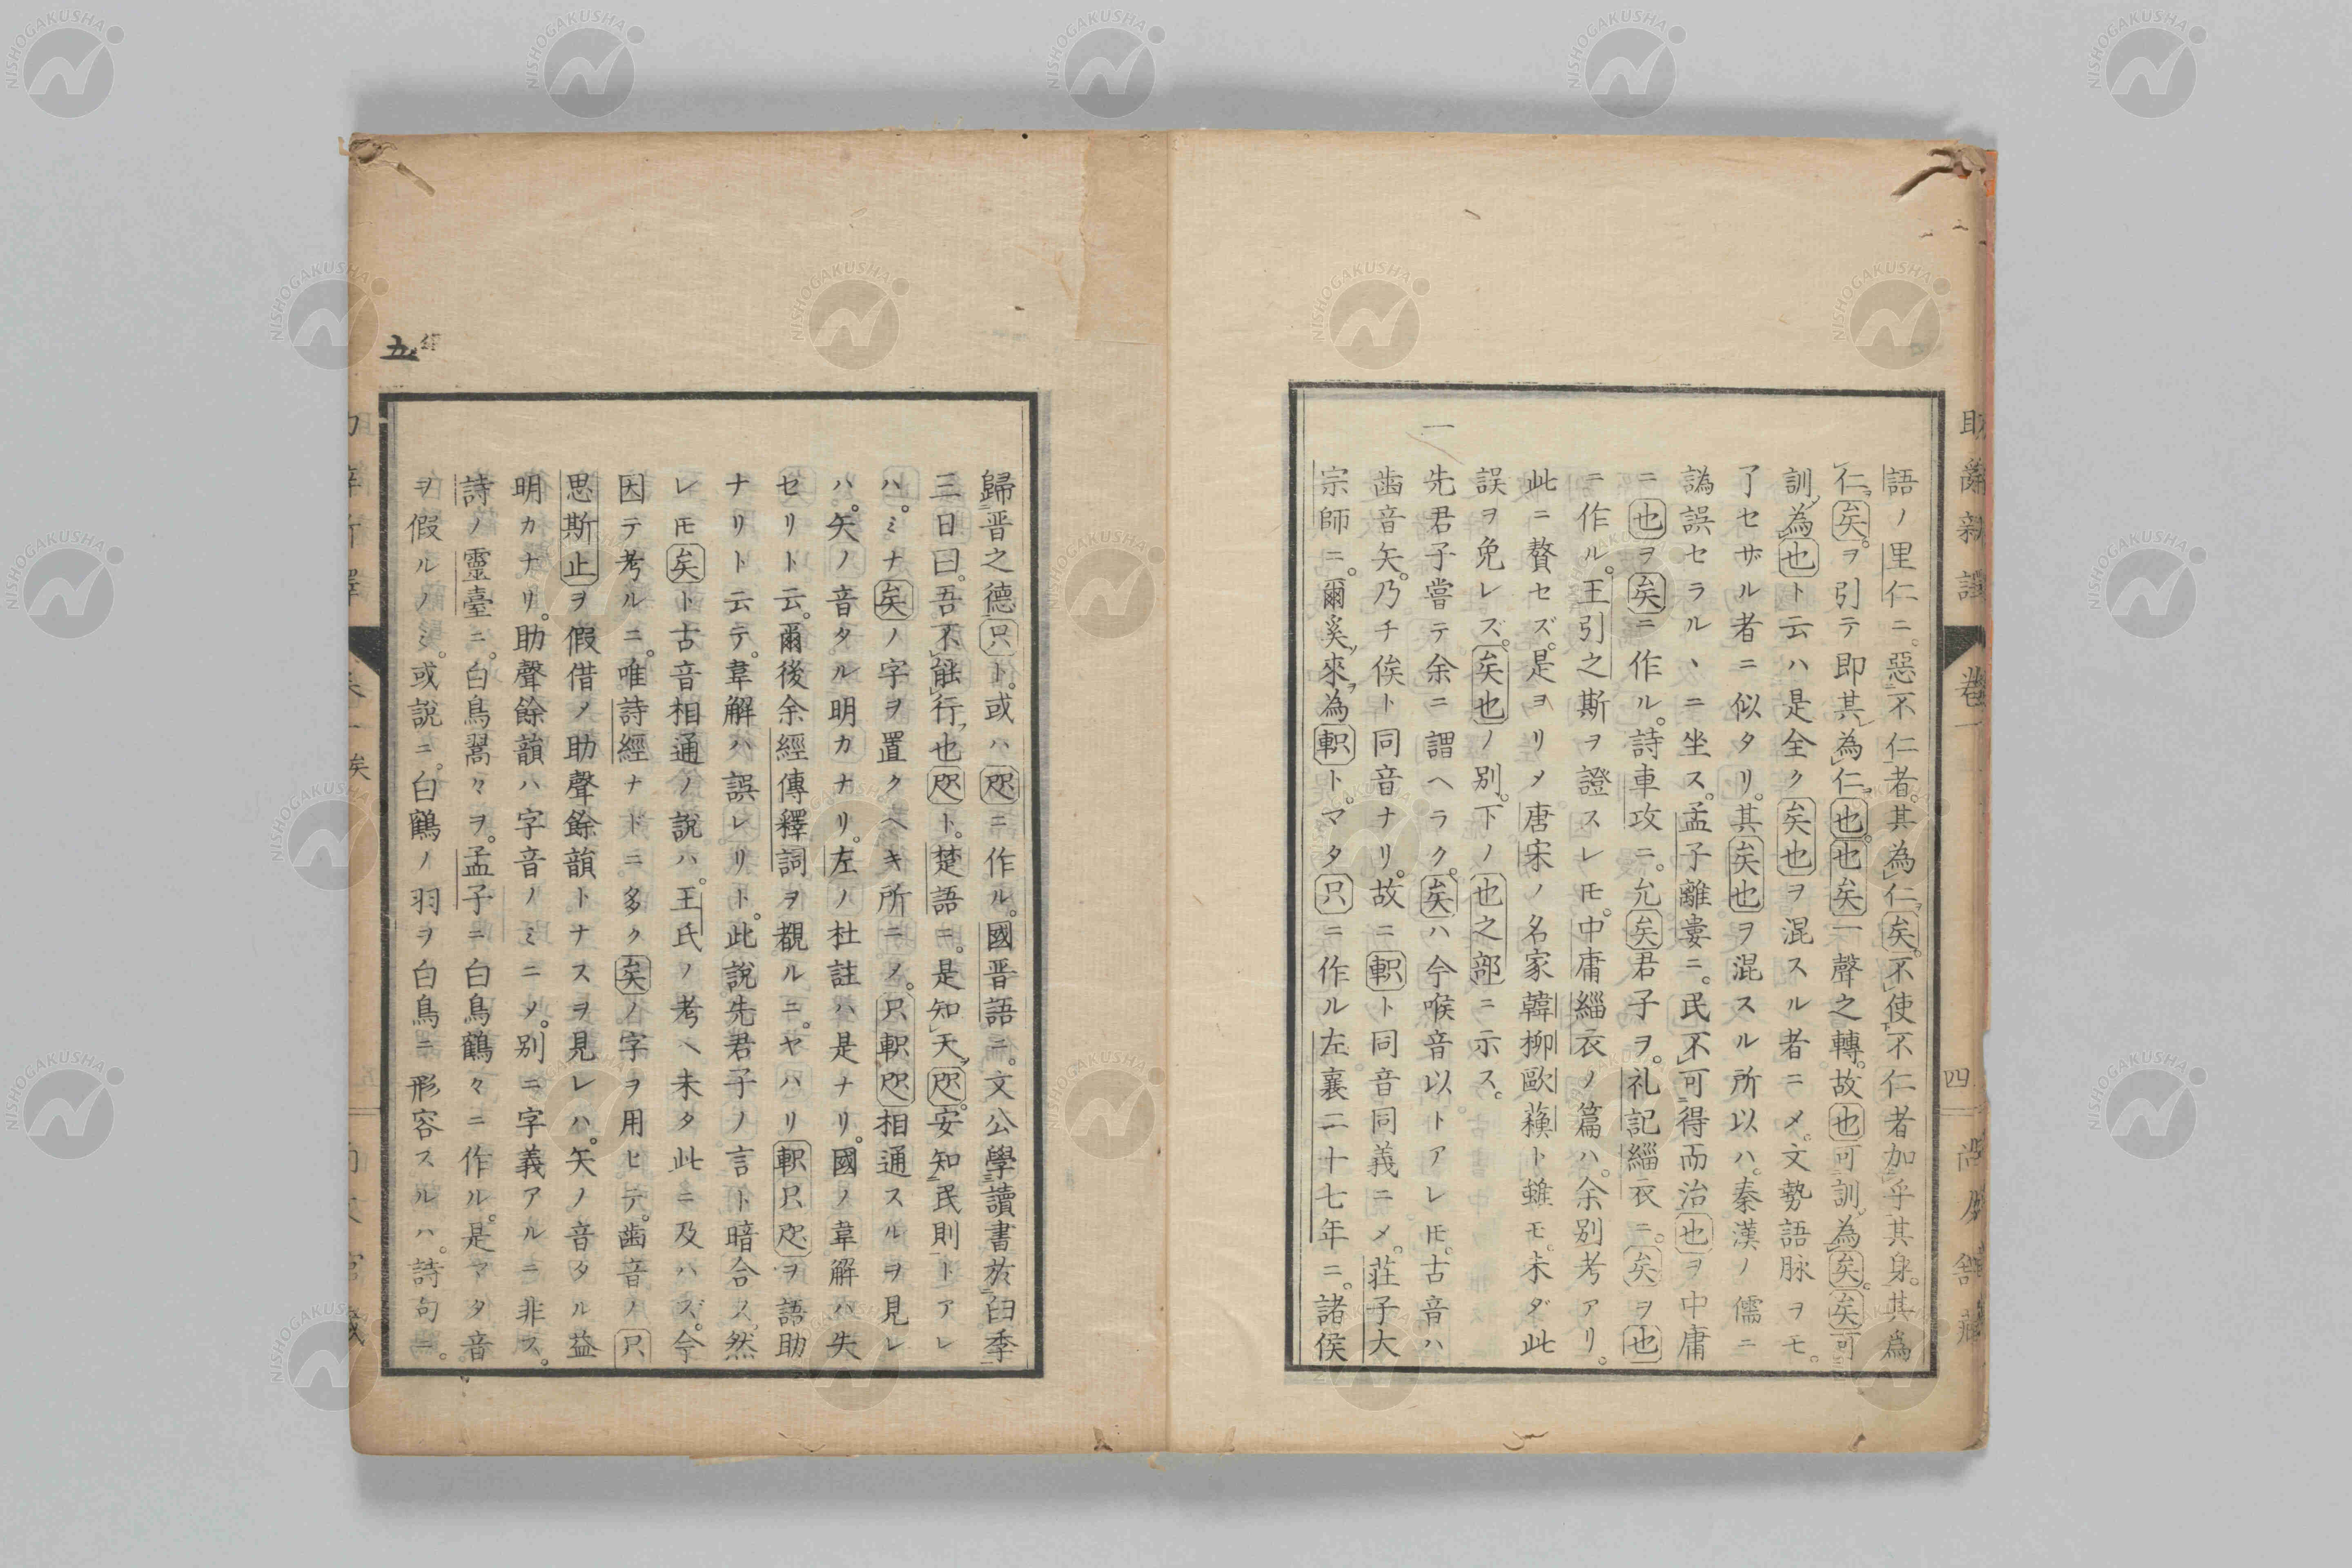 助辭新譯
卷一
四
語ノ里仁ニ。惡不仁者。其為仁矣。不使不仁者加乎其身。其為
仁矣。ヲ引テ即其為仁也。也矣一聲之轉。故也可訓為矣。矣可
訓為也ト云ハ是全ク矣也ヲ混スル者ニメ。文勢語脉ヲモ。
了セザル者ニ似タリ。其矣也ヲ混スル所以ハ。秦漢ノ儒ニ
譌誤セラルヽニ坐ス。孟子離婁ニ。民不可得而治也ヲ中庸
ニ也ヲ矣ニ作ル。詩車攻ニ。允矣君子ヲ。礼記緇衣ニ。矣ヲ也
ニ作ル。王引之斯ヲ證スレ𪜈。中庸緇衣ノ篇ハ。余別考アリ。
此ニ贅セズ。是ヨリメ唐宋ノ名家韓柳歐蘓ト雖モ。未ダ此
誤ヲ免レズ。矣也ノ別。下ノ也之部ニ示ス。
先君子嘗テ余ニ謂ヘラク。矣ハ今喉音以トアレ𪜈。古音ハ
歯音矢。乃チ俟ト同音ナリ。故ニ軹ト同音同義ニメ。莊子大
宗師ニ。爾奚來為軹ト。マタ只ニ作ル左襄二十七年ニ。諸侯
歸晋之德只ト。或ハ咫ニ作ル。國晋語ニ。文公學讀書於臼季
三日曰。吾不能行也咫ト。楚語ニ。是知天咫。安知民則トアレ
ハ。ミナ矣ノ字ヲ置クヘキ所ニメ。只軹咫相通スルヲ見レ
ハ。矢ノ音タル明カナリ。左ノ杜註ハ是ナリ。國ノ韋解ハ失
セリト云。爾後余經傳釋詞ヲ覩ルニ。ヤハリ軹只咫ヲ語助
ナリト云テ。韋解ハ誤レリト。此說先君子ノ言ト暗合ス。然
レ𪜈矣ト古音相通ノ說ハ。王氏ノ考ヘ未タ此ニ及ハズ。今
因テ考ルニ。唯詩經ナドニ。多ク矣ノ字ヲ用ヒテ。歯音ノ只
思斯止ヲ假借ノ助聲餘韻トナスヲ見レハ。矢ノ音タル益
明カナリ。助聲餘韻ハ字音ノミニメ。別ニ字義アルニ非ス。
詩ノ靈臺ニ。白鳥翯々ヲ。孟子ニ白鳥鶴々ニ作ル。是マタ音
ヲ假ルノミ。或說ニ。白鶴ノ羽ヲ白鳥ニ形容スルハ。詩句ニ。
五